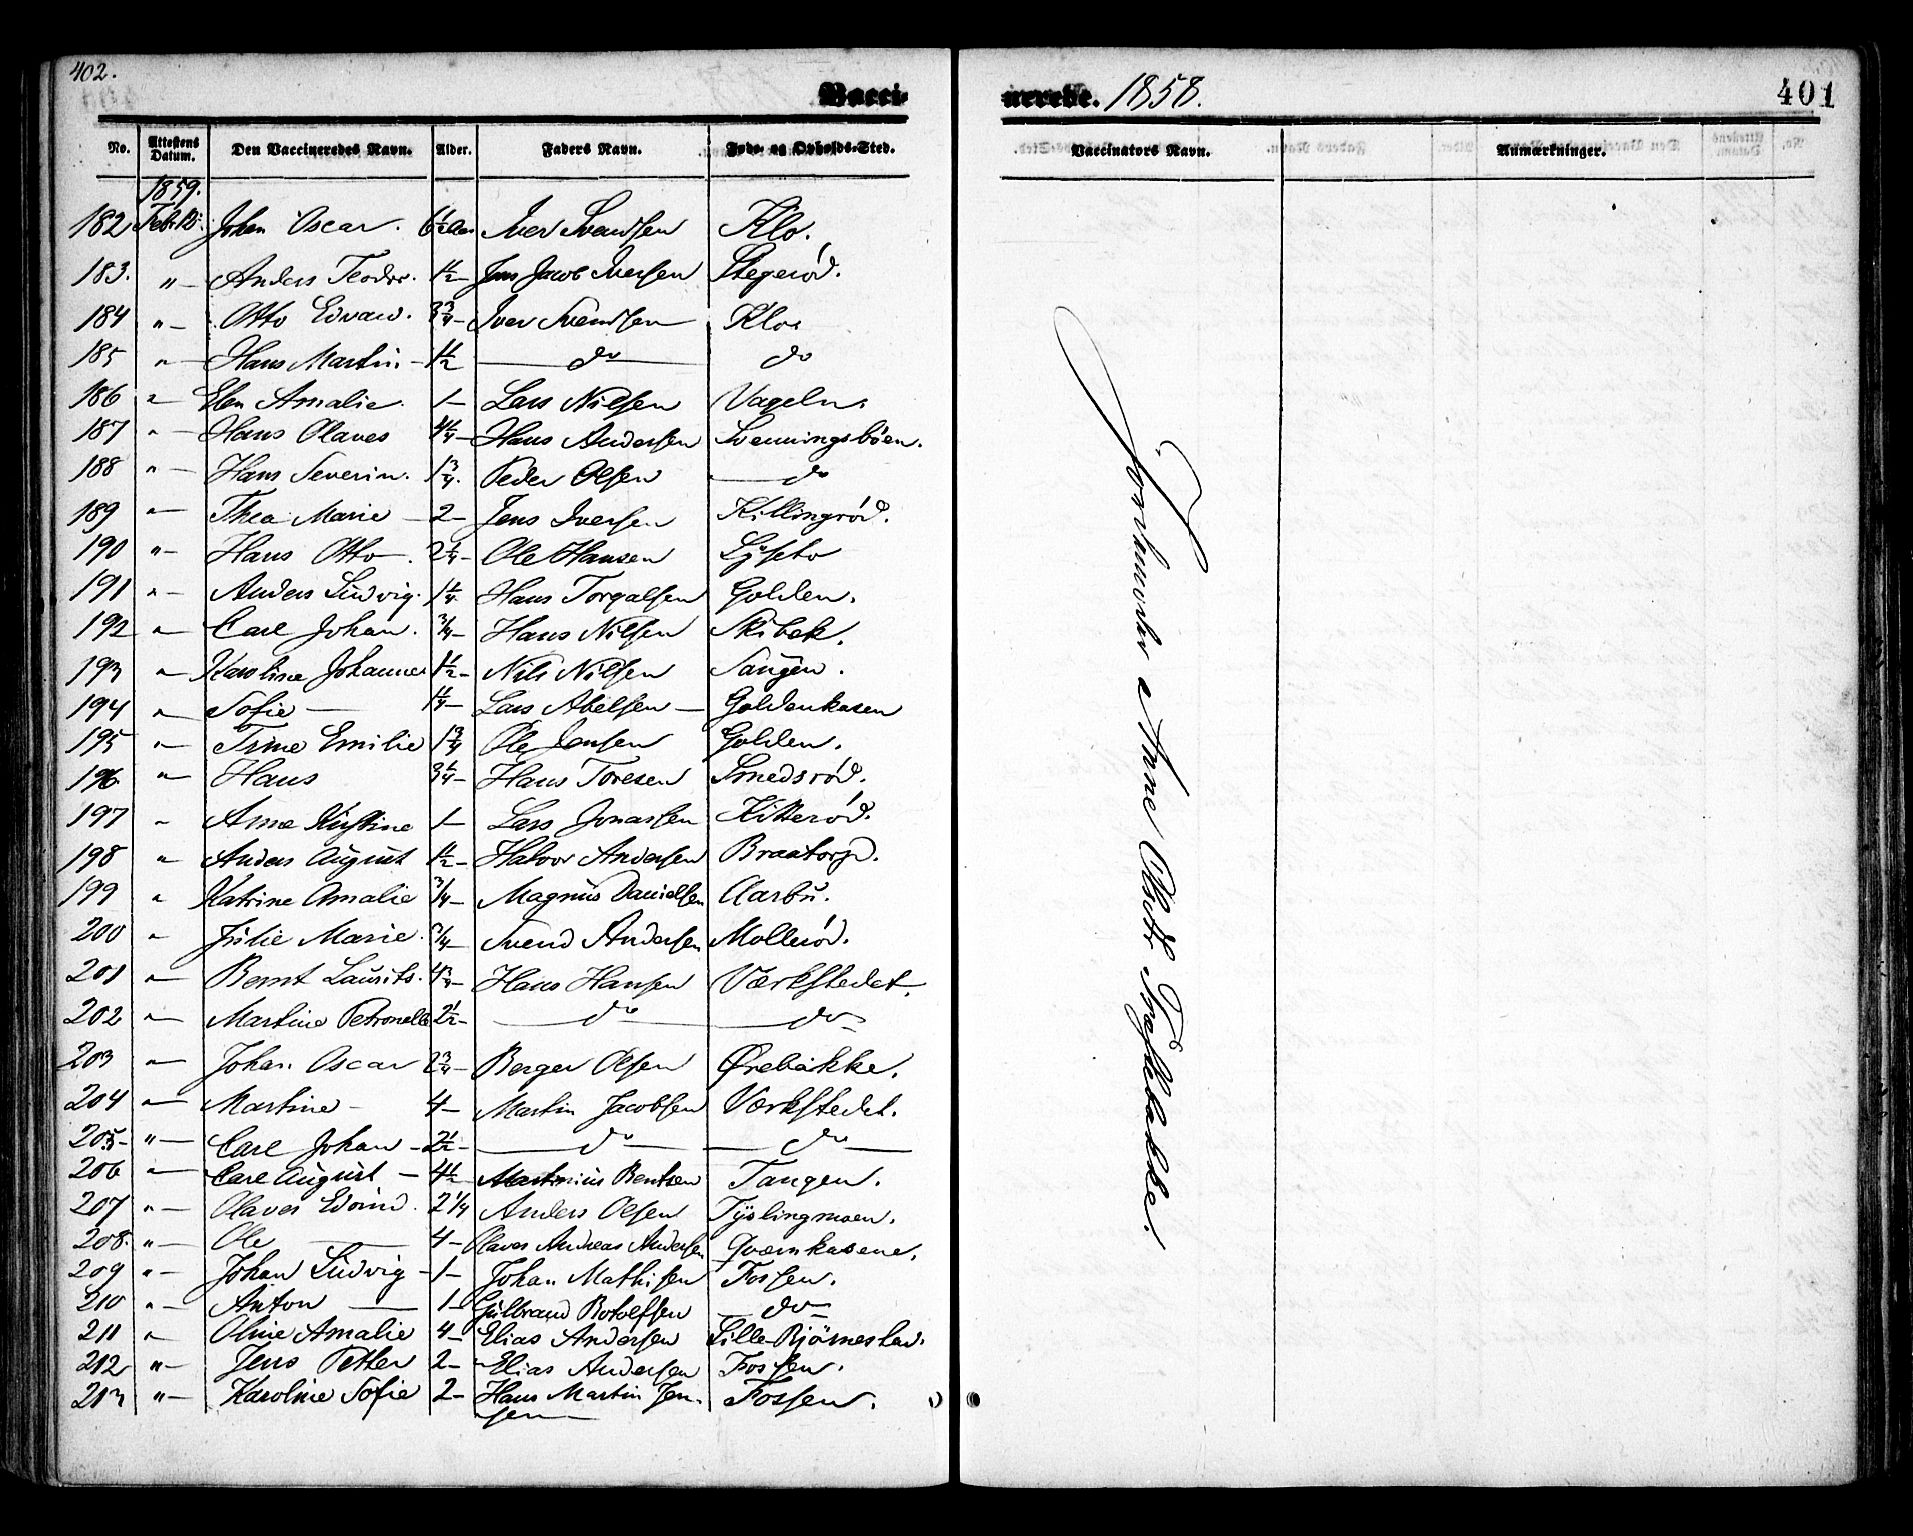 402.
Vaccinerede. 1858.
401
No. Attestens Datum. Den Vaccineredes Navn. Alder. Faders Navn. Føde- og Opholds-Sted. Vaccinators Navn. Anmærkninger.
1859.
182 Febr. Johan Oscar. 6½ Iver Svendsen Klo.
183. " Anders Teodor. 1½ Jens Jacob Iversen Stegerød.
184 " Otto Edvard. 3¾ Iver Svendsen Klo
185 " Hans Martin. 1½ do do
186 " Elen Amalie. 1 Lars Nilsen Vageln.
187 " Hans Olaves 4¼ Hans Andersen Svenningsbøen.
188 " Hans Severin. 1¾ Peder Olsen do
189 " Thea Marie 2 Jens Iversen Killingrød.
190 " Hans Otto 2¼ Ole Hansen
191 " Anders Ludvig. 1¼ Hans Torgalsen Golden.
192 " Carl Johan. ¾ Hans Nilsen Skibek.
193 " Karoline Johanne 1½ Nils Nilsen Saugen.
194 " Sofie 1¼ Lars Abelsen Goldenkasen
195 " Trine Emilie 1¾ Ole Jensen Golden.
196 " Hans 3¼ Hans Toresen Smedsrød.
197 " Anne Kristine 1 Lars Jonassen Kitterød.
198 " Anders August 1½ Halvor Andersen Braatorp.
199 " Katrine Amalie ¾ Magnus Danielsen Aarbu.
200 " Julie Marie. ¾ Svend Andersen Mollerød.
201 " Bernt Laurits. 4¾ Hans Hansen Værkstedet.
202 " Martine Petronelle 2½ do do
203 " Johan Oscar 2¾ Berger Olsen Ørebække.
204 " Martine 4 Martin Jacobsen Værkstedet.
205 " Carl Johan 2½ do do
206 " Carl August 4½ Martinius Bentsen Tangen.
207 " Olaves Edvind. 2¼ Anders Olsen Tyslingmoen.
208. " Ole 4 Olaves Andreas Andersen Qværnkasene.
209 " Johan Ludvig 1 Johan Mathisen Fossen.
210 " Anton 1 Gulbrand Botolfsen do
211 " Oline Amalie 4 Elias Andersen Lille Bjørnestad.
212 " Jens Petter 2 Elias Andersen Fossen.
213 " Karoline Sofie 2 Hans Martin Jensen Fossen.
Jordemoder Anne